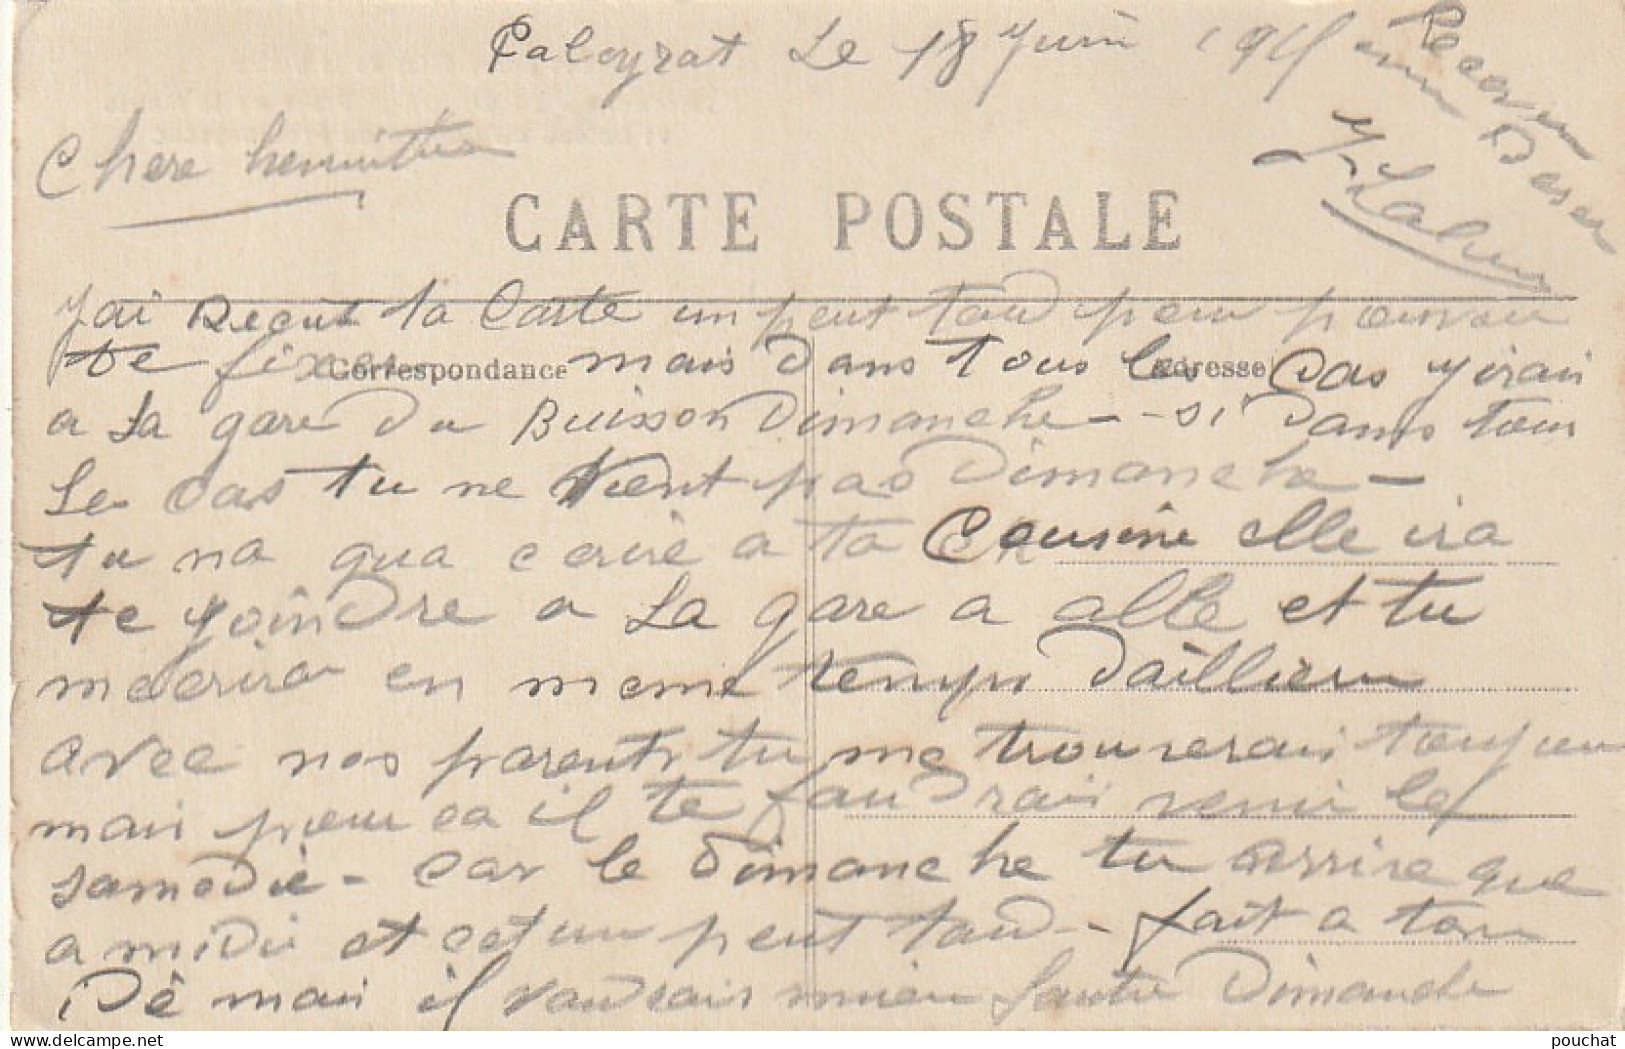 Paleyrat Le 18 Juin 191
Chere
CARTE POSTALE
J'ai Recut ta Carte un peut tard pour pouvoir
te fixer mais dans tous les Cas j'irai
Correspondance
Adresse
a La gare du Buisson Dimanche - si dans tous
Les Cas tu ne Vient pas Dimanche -
tu na qua ecrire a ta Cousine elle ira
te joindre a La gare a alle et tu
mecrira en meme temps Daillieur
avec nos parents tu me trouverais toujour
mais pour ca il te faudrais venir le
samedie - Car le Dimanche tu arrive que
a midie et cet un peut tard - fait a ton
Idê mais il vaudrais mieu Lautre Dimanche
pouchat